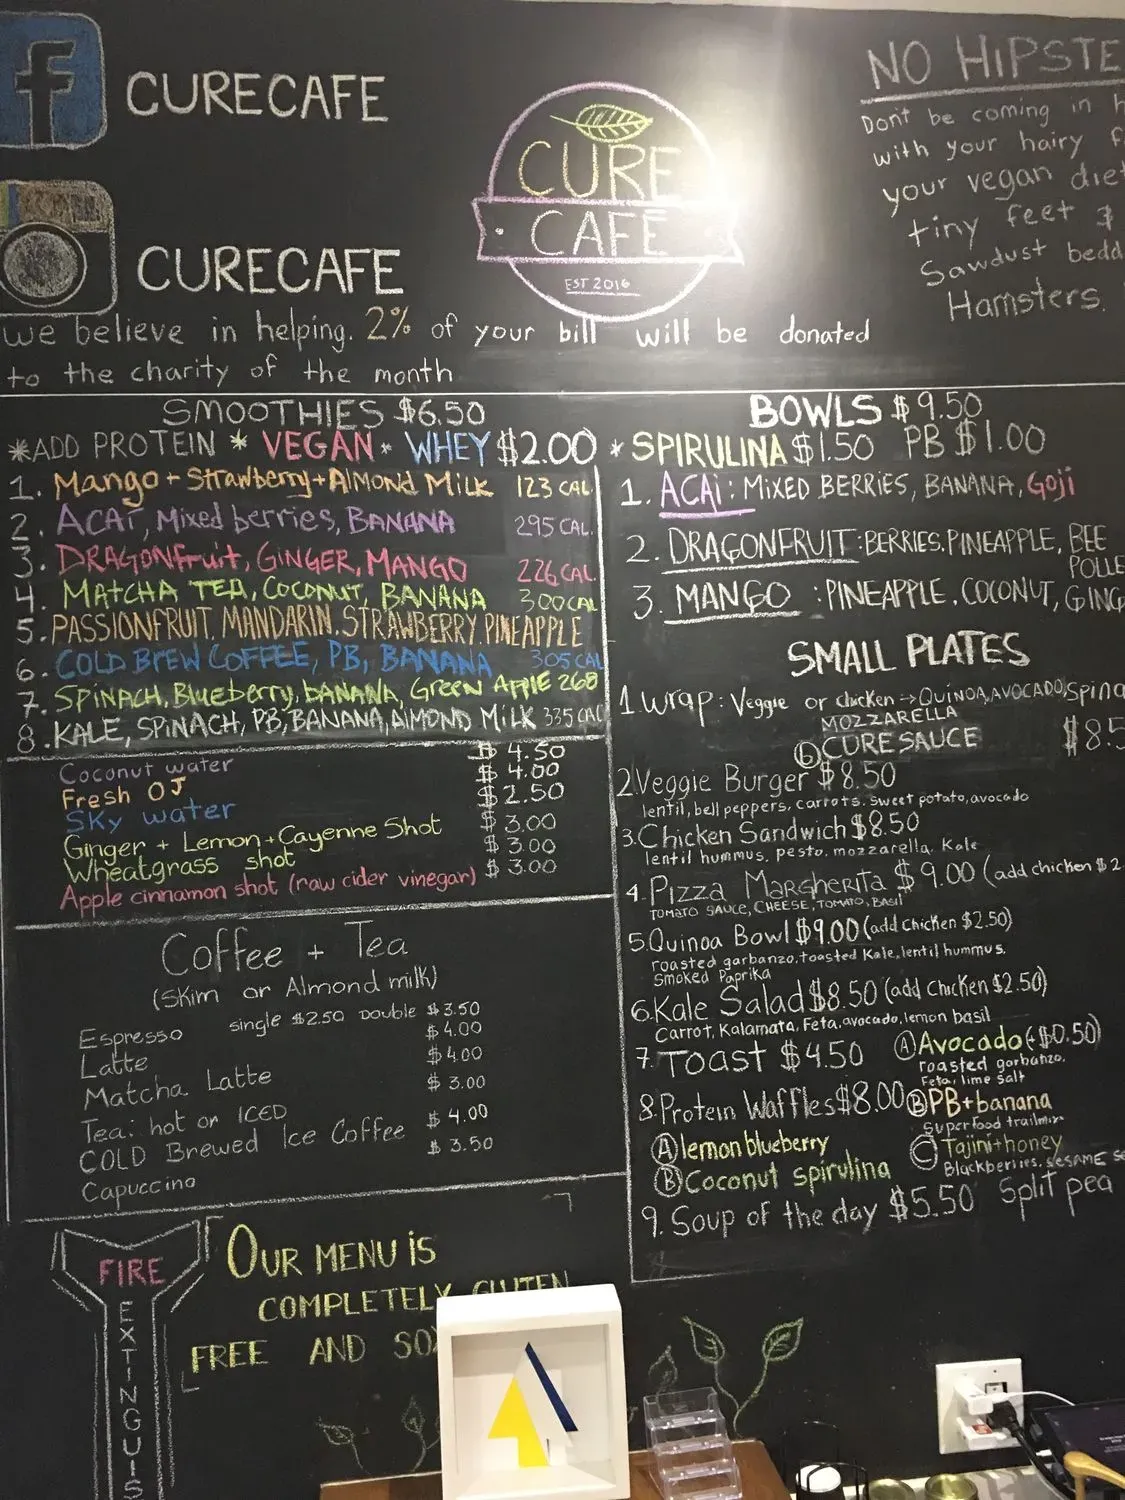 CURECAFE
CURECAFE
CURE
CAFE
EST 2016
NO HIPSTE
Don't be coming in h
with your hairy f
your vegan diet
tiny feet &
Sawdust bedd
Hamsters.
we believe in helping. 2% of your bill will be donated
to the charity of the month
SMOOTHIES $6.50
*ADD PROTEIN * VEGAN * WHEY $2.00
1. Mango + Strawberry + Almond Milk 123 CAL
2. Acai, Mixed berries, BANANA 295 CAL
3. DRAGONfruit, GINGER, MANGO 226 CAL
4. MATCHA TEA, COCONUT, BANANA 300 CAL
5. PASSIONFRUIT, MANDARIN, STRAWBERRY, PINEAPPLE
6. COLD BREW COFFEE, PB, BANANA 305 CAL
7. SPINACH, Blueberry, BANANA, Green APPLE 268
8. KALE, SPINACH, PB, BANANA, Almond MILK 335 CAL
Coconut water $4.50
Fresh OJ $4.00
SKY water $2.50
Ginger + Lemon + Cayenne Shot $3.00
Wheatgrass shot $3.00
Apple cinnamon shot (raw cider vinegar) $3.00
Coffee + Tea
(Skim or Almond milk)
Espresso single $2.50 Double $3.50
Latte $4.00
Matcha Latte $4.00
Tea: hot or ICED $3.00
COLD Brewed Ice Coffee $4.00
Capuccino $3.50
BOWLS $9.50
*SPIRULINA $1.50 PB $1.00
1. ACAi: MIXED BERRIES, BANANA, Goji
2. DRAGONFRUIT: BERRIES, PINEAPPLE, BEE
POLLE
3. MANGO : PINEAPPLE, COCONUT, GING
SMALL PLATES
1 wrap: Veggie or chicken → QUINOA, AVOCADO, Spina
MOZZARELLA
CURE SAUCE $8.5
2. Veggie Burger $8.50
lentil, bell peppers, carrots, sweet potato, avocado
3. Chicken Sandwich $8.50
lentil hummus, pesto, mozzarella, Kale
4. Pizza Margherita $9.00 (add chicken $2.
TOMATO SAUCE, CHEESE, TOMATO, BASIL
5. Quinoa Bowl $9.00 (add Chicken $2.50)
roasted garbanzo, toasted Kale, lentil hummus,
Smoked Paprika
6. Kale Salad $8.50 (add chicken $2.50)
Carrot, Kalamata, Feta, avocado, lemon basil
7. Toast $4.50
Ⓐ Avocado (+$0.50)
roasted garbanzo,
Feta, lime salt
Ⓑ PB + banana
Superfood trailmix
Ⓒ Tajini + honey
Blackberries, sesame se
8. Protein Waffles $8.00
Ⓐ lemon blueberry
Ⓑ Coconut spirulina
9. Soup of the day $5.50 Split pea
FIRE
EXTINGUIS
OUR MENU iS
COMPLETELY GLUTEN
FREE AND SO